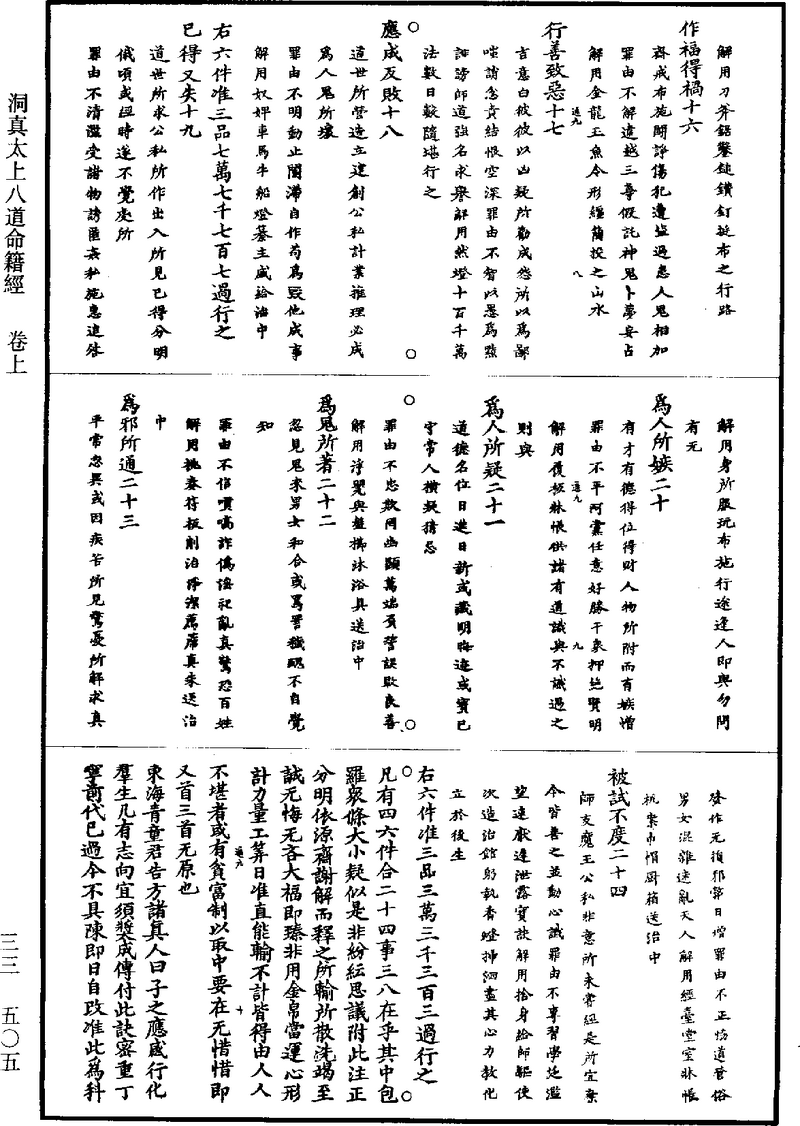 洞真太上八道命籍經 卷上
三三 五〇五
解用刀斧鋸鑿鎚鑽釘挺布之行路
作福得禍十六
齋戒布施鬪諍傷犯遭盜遇患人鬼相加
罪由不解違越三尊假託神鬼卜夢妄占
解用金龍玉魚令形經簡投之山水
行善致惡十七
言意白被彼以凶疑所勸成怨所以為鄙
嗤誚忿責結恨空深罪由不智以愚為點
誹謗師道強名求譽解用然燈十百千萬
法數日數隨堪行之
應成反敗十八
道世所營造立建創公私計業推理必成
為人鬼所壞
罪由不明動止闇滯自作苟為毀他成事
解用奴婢車馬牛船燈纂主盛給治中
右六件准三品七萬七千七百七過行之
已得又失十九
道世所求公私所作出入所見已得分明
俄頃或經時遂不覺處所
罪由不清濫受讃物謗匿姦私施惠追咎
解用身所服玩布施行途逢人即與勿問
有无
為人所嫉二十
有才有德得位得財人物所附而有嫉憎
罪由不平阿黨任意好勝干衆抑絕賢明
解用覆板牀帳供諸有道識與不識過之
則與
為人所疑二十一
道德名位日進日新或讖明晦違或寶已
守常人橫疑猜忌
罪由不忠欺罔幽顯萬端負誓誤欺良善
解用浮甖與盤撇沐浴具送治中
為鬼所著二十二
忽見鬼來男女和合或罵詈穢聰不自覺
知
罪由不信嗔嗃詐僞淫祀亂真驚恐百姓
解用桃奏符板制治淨潔薦席真來送治
中
為邪所通二十三
平常忽異或因疾苦所見驚憂所解求真
發作无損邪第日增罪由不正妨道營俗
男女混雜迷亂天人解用經臺堂室牀帳
机案巾帽厨箱送治中
被試不度二十四
師友魔王公私非意所未嘗經是所宜棄
今皆善之並動心識罪由不專習學延濫
望速獻達泄露寶訣解用捨身給師驅使
次造治館躬執香燈掃洒盡其心力教化
立於後生
右六件准三品三萬三千三百三過行之
凡有四六件合二十四事三八在乎其中包
羅衆條大小疑似是非紛紜思議附此注正
分明依源齋謝解而釋之所輸所散洗竭至
誠无悔无吝大福即臻非用金帛當運心形
計力量工筭日准直能輸不計皆得由人人
不堪者或有貧富制以取中要在无惜惜即
又首三首无原也
東海青童君告方諸真人曰子之應感行化
羣生凡有志向宜須獎成傳付此訣密重丁
寧前代已過今不具陳即日自改准此為科